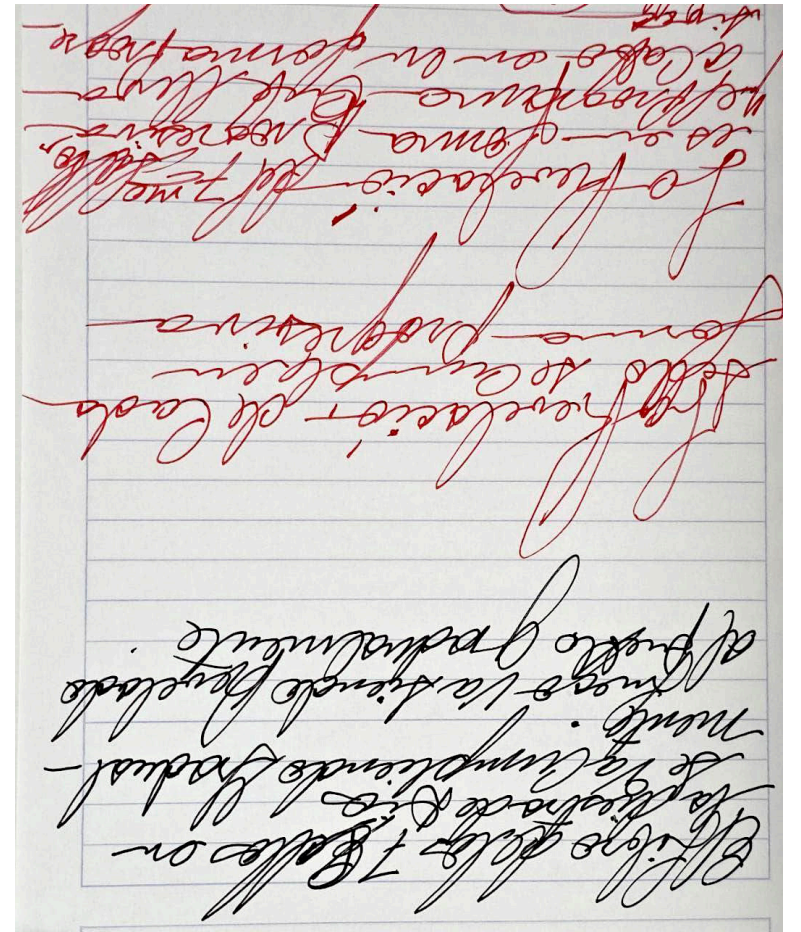 El Libro de los 7 Sellos en
la diestra de Dios
se va Cumpliendo Gradual-
mente.
y luego va siendo Revelado
al pueblo gradualmente.
La Revelación de Cada
sello se Cumple en
forma progresiva
La Revelación del 7mo Sello,
es en forma Progresiva
programa que lleva
a Cabo en forma Progre-
siva